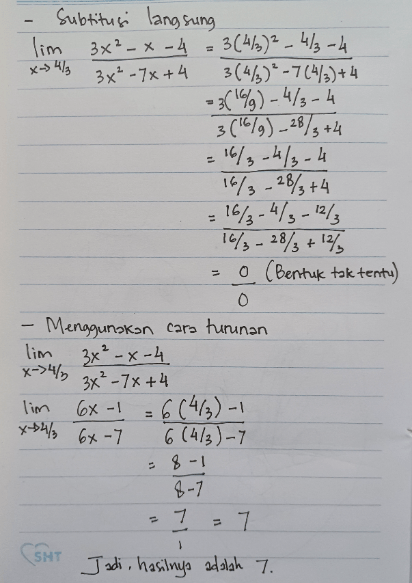 - Subtitusi langsung
lim x→4/3 (3x² - x - 4)/(3x² - 7x + 4) = (3(4/3)² - 4/3 - 4)/(3(4/3)² - 7(4/3) + 4)
= (3(16/9) - 4/3 - 4)/(3(16/9) - 28/3 + 4)
= (16/3 - 4/3 - 4)/(16/3 - 28/3 + 4)
= (16/3 - 4/3 - 12/3)/(16/3 - 28/3 + 12/3)
= 0/0 (Bentuk tak tentu)
- Menggunakan cara turunan
lim x→4/3 (3x² - x - 4)/(3x² - 7x + 4)
lim x→4/3 (6x - 1)/(6x - 7) = (6(4/3) - 1)/(6(4/3) - 7)
= (8 - 1)/(8 - 7)
= 7/1 = 7
SHT
Jadi, hasilnya adalah 7.